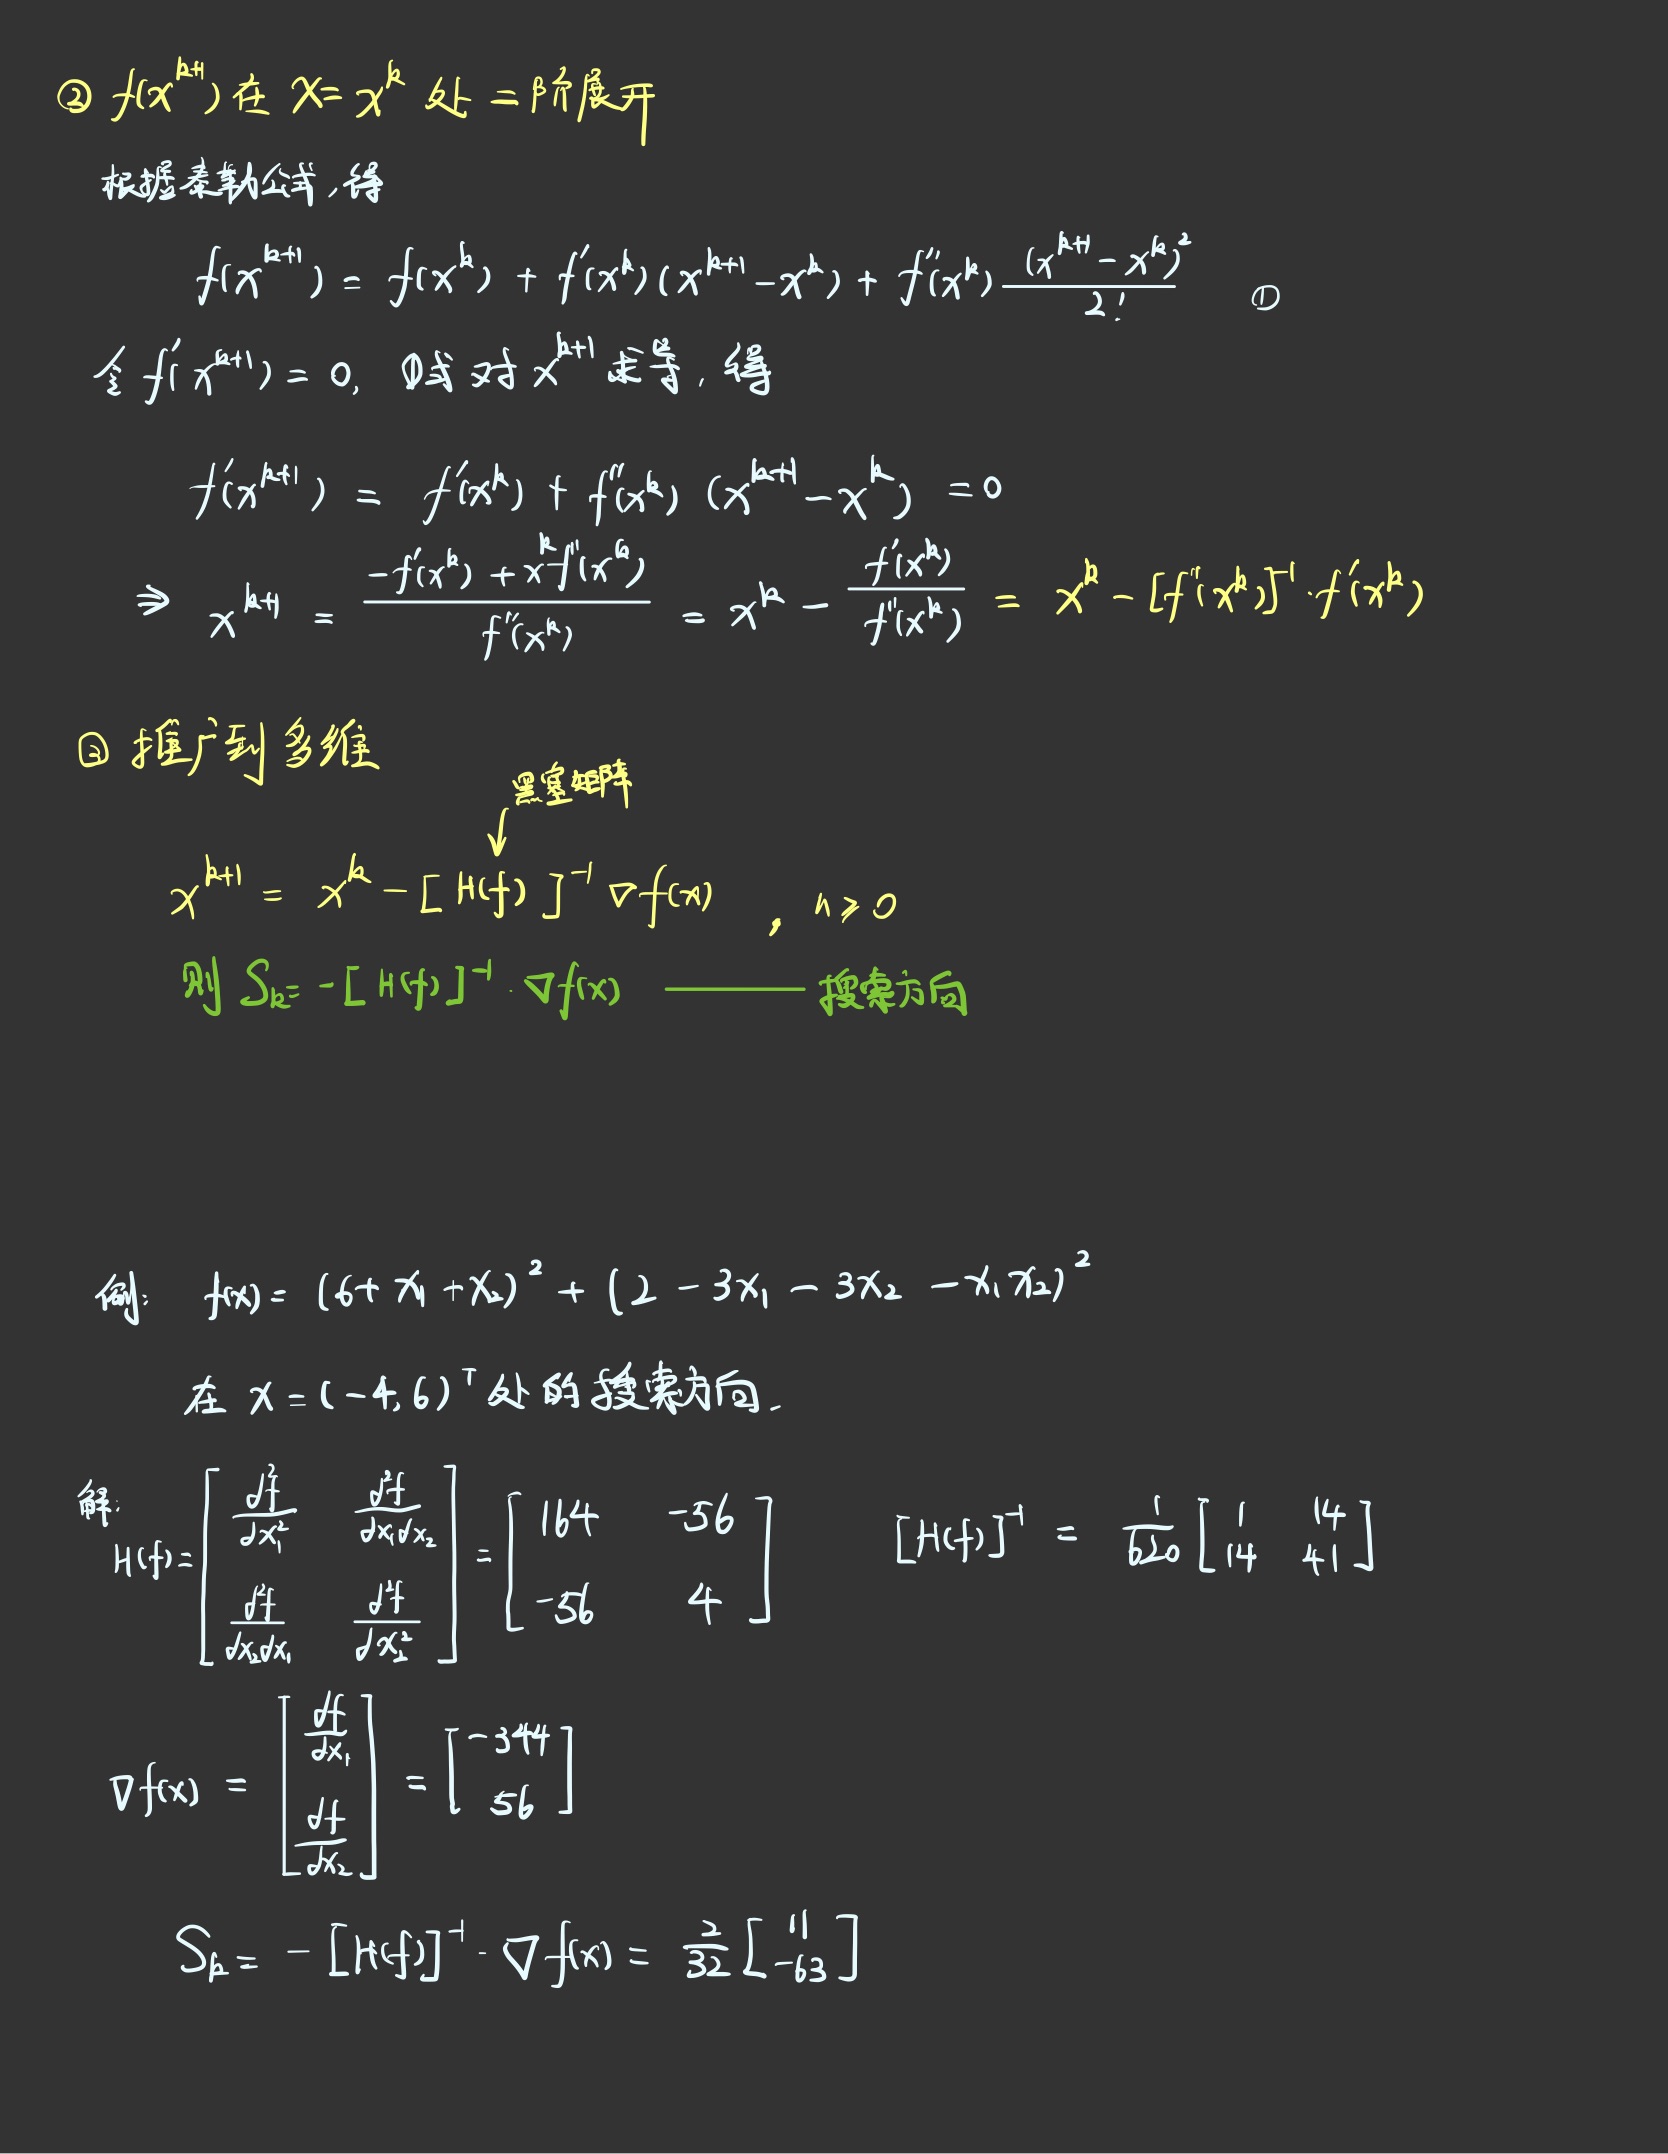 ② f(x^{k+1}) 在 X = x^k 处二阶展开
根据泰勒公式,得
f(x^{k+1}) = f(x^k) + f'(x^k)(x^{k+1} - x^k) + f''(x^k) \frac{(x^{k+1} - x^k)^2}{2!} ①
令 f'(x^{k+1}) = 0, ①式对 x^{k+1} 求导, 得
f'(x^{k+1}) = f'(x^k) + f''(x^k) (x^{k+1} - x^k) = 0
⇒ x^{k+1} = \frac{-f'(x^k) + x^k f''(x^k)}{f''(x^k)} = x^k - \frac{f'(x^k)}{f''(x^k)} = x^k - [f''(x^k)]^{-1} · f'(x^k)
③ 推广到多维
黑塞矩阵
x^{k+1} = x^k - [H(f)]^{-1} ∇f(x) , n ≥ 0
则 S_k = -[H(f)]^{-1} · ∇f(x) —— 搜索方向
例: f(x) = (6 + x_1 + x_2)^2 + (2 - 3x_1 - 3x_2 - x_1x_2)^2
在 x = (-4, 6)^T 处的搜索方向.
解: H(f) = \begin{bmatrix} \frac{d^2f}{dx_1^2} & \frac{d^2f}{dx_1dx_2} \\ \frac{d^2f}{dx_2dx_1} & \frac{d^2f}{dx_2^2} \end{bmatrix} = \begin{bmatrix} 164 & -56 \\ -56 & 4 \end{bmatrix} [H(f)]^{-1} = \frac{1}{620} \begin{bmatrix} 1 & 14 \\ 14 & 41 \end{bmatrix}
∇f(x) = \begin{bmatrix} \frac{df}{dx_1} \\ \frac{df}{dx_2} \end{bmatrix} = \begin{bmatrix} -344 \\ 56 \end{bmatrix}
S_k = -[H(f)]^{-1} · ∇f(x) = \frac{2}{32} \begin{bmatrix} 11 \\ -63 \end{bmatrix}